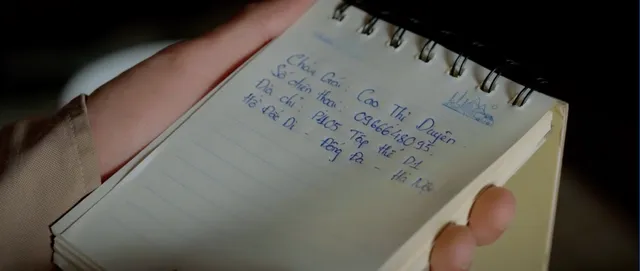 Cháu Gái: Cao Thị Duyên
Số điện thoại: 0966648093.
Địa chỉ: P405 Tập thể D1
- Đống Đa - Hà Nội